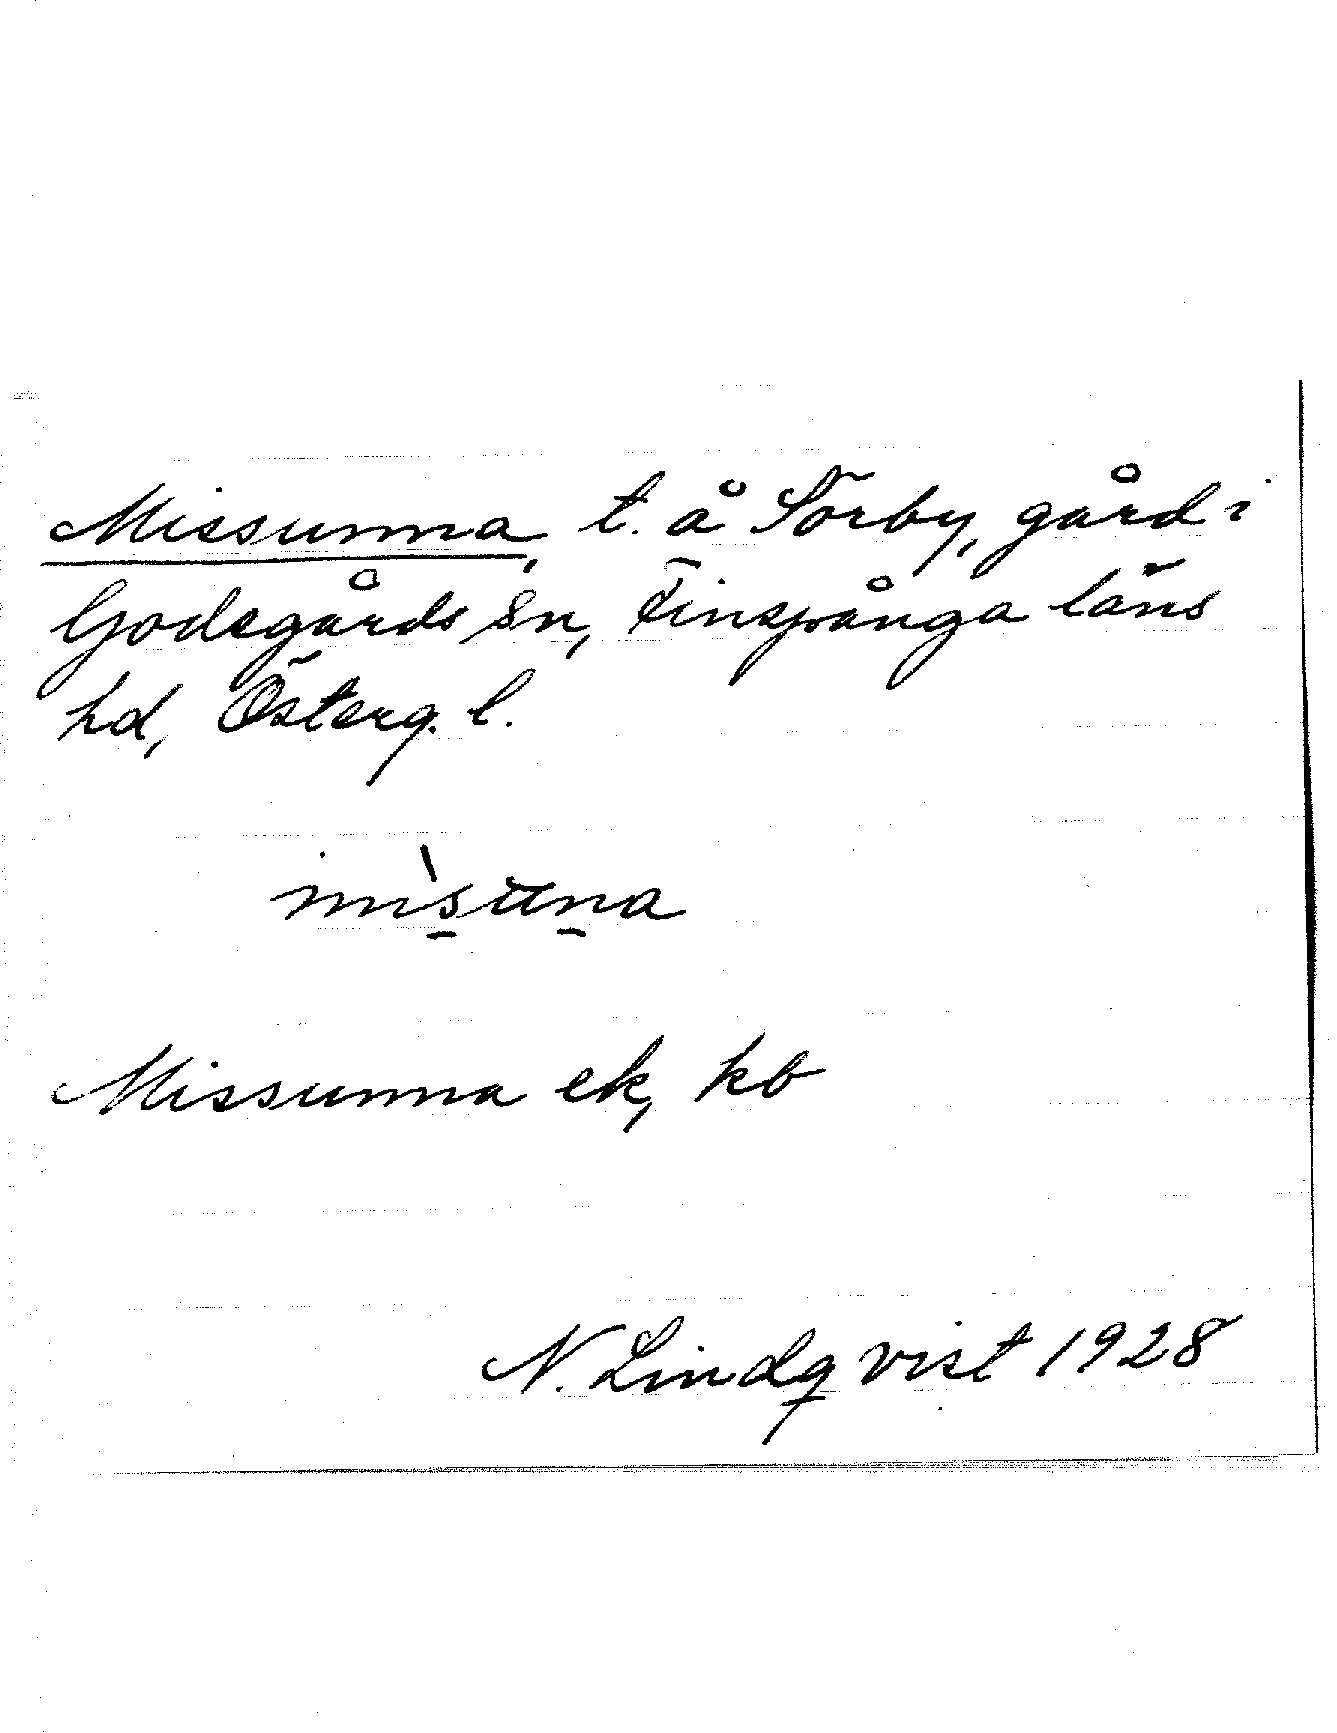 Missunna, t. å Sörby, gård i
Godegårds sn, Finspånga läns
hd, Österg. l.
mi`s̱ɯṉa
Missunna ek, kb
N. Lindqvist 1928